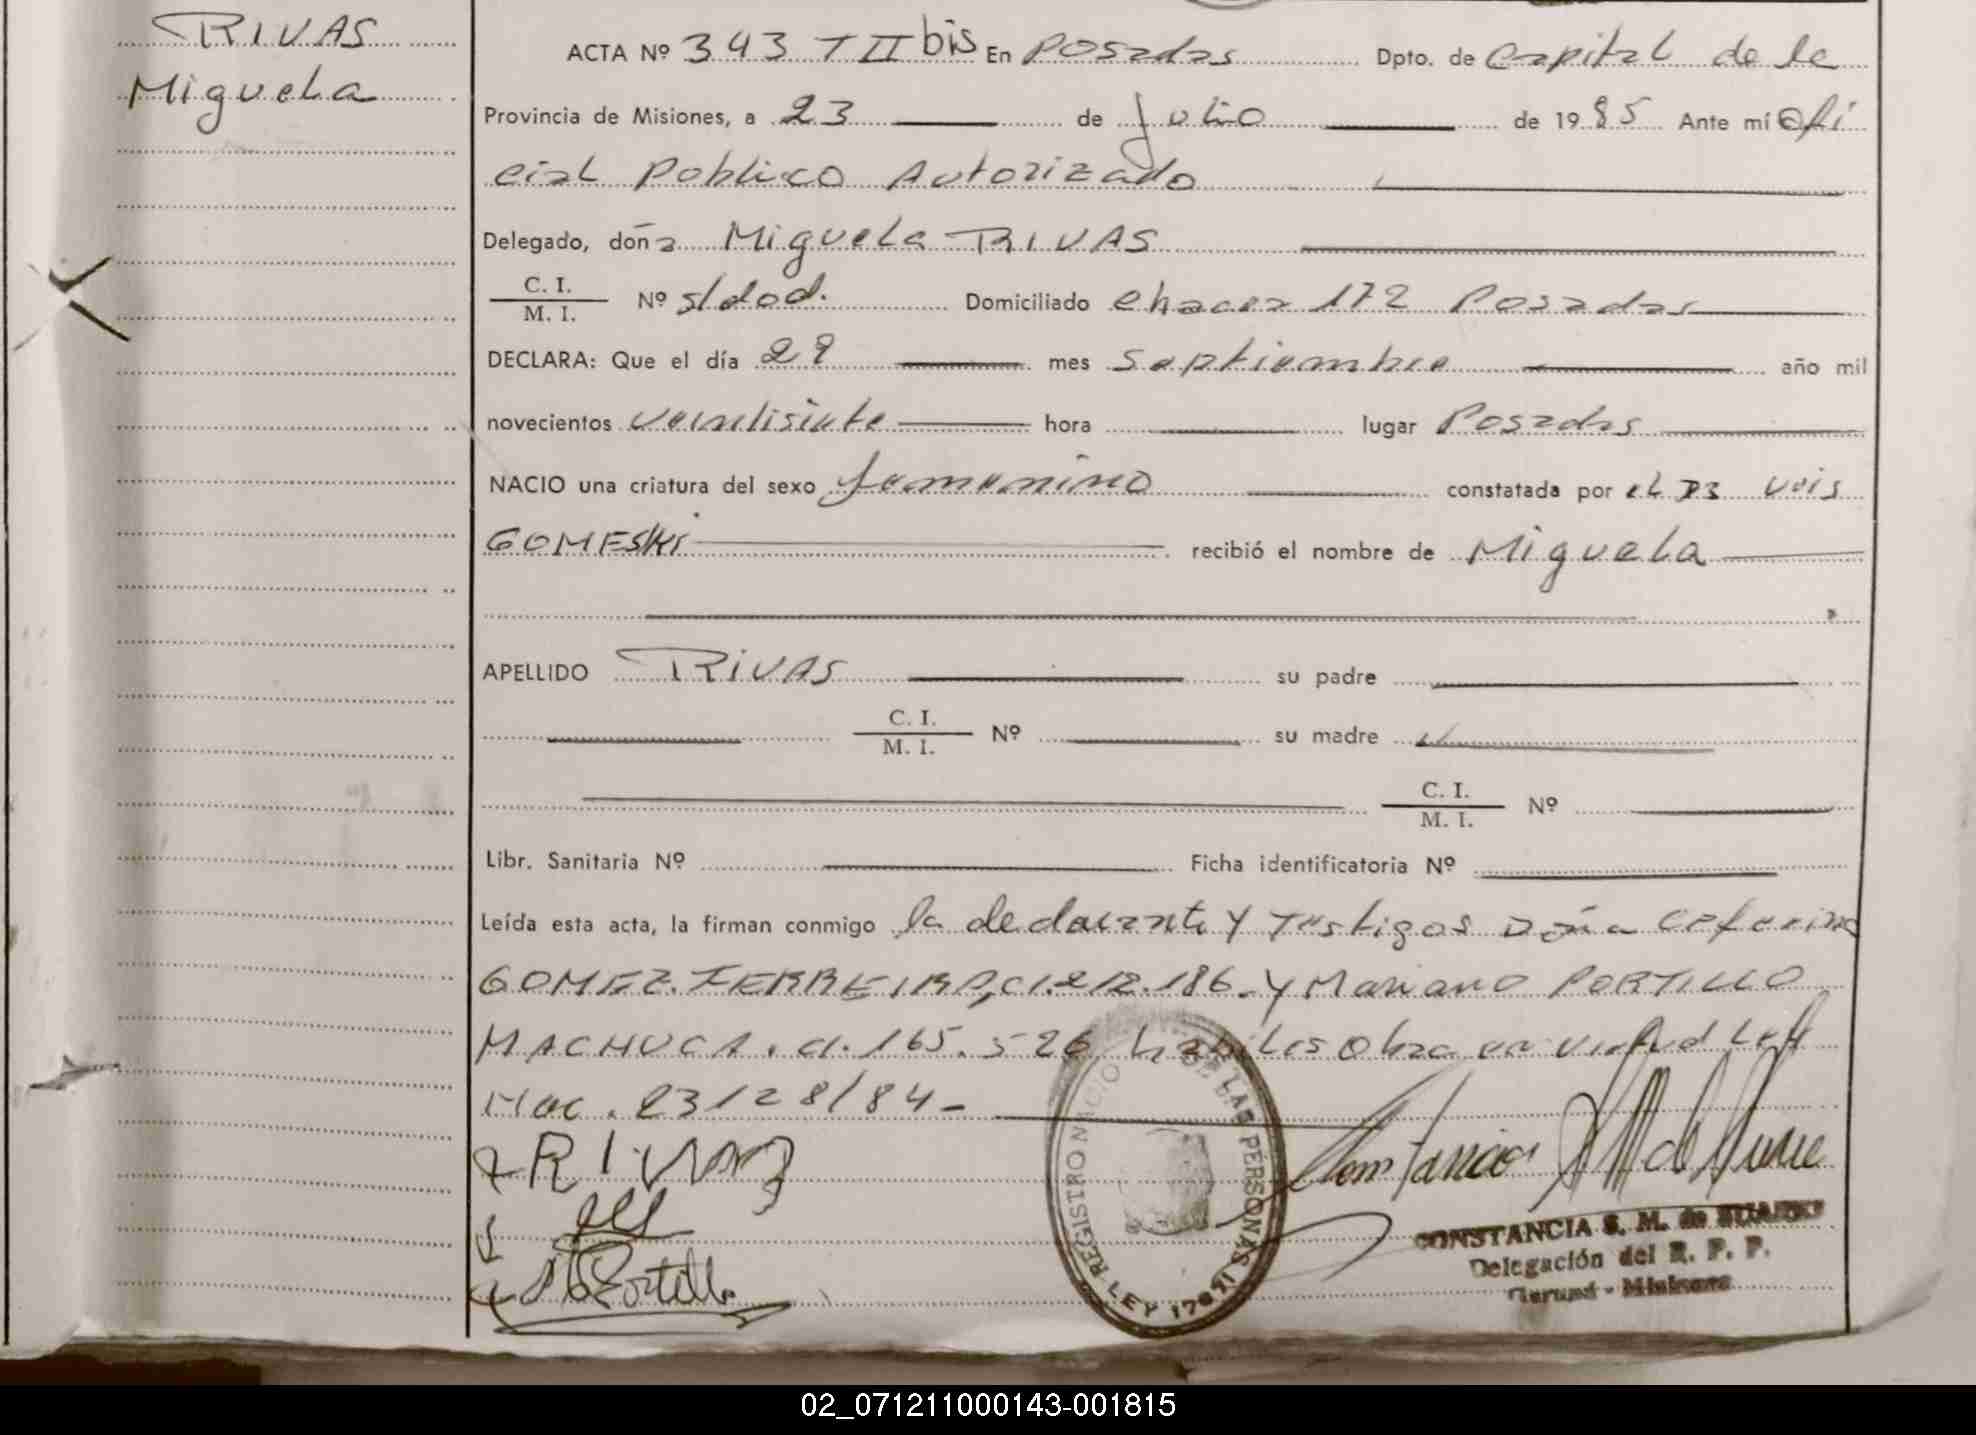 RIVAS
Miguela
ACTA Nº 343 T II bis En Posadas Dpto. de Capital de la
Provincia de Misiones, a 23 de Julio de 1985 Ante mí Ofi
cial Publico Autorizado
Delegado, doña Miguela RIVAS
C. I.
M. I. Nº s/dod. Domiciliado chacra 172 Posadas
DECLARA: Que el día 29 mes Septiembre año mil
novecientos veintisiete hora lugar Posadas
NACIO una criatura del sexo femenino constatada por el
GOMESKI recibió el nombre de Miguela
APELLIDO RIVAS su padre
C. I.
M. I. Nº su madre
C. I.
M. I. Nº
Libr. Sanitaria Nº Ficha identificatoria Nº
Leída esta acta, la firman conmigo la declarante y Testigos Doña Ceferina
GOMEZ FERREIRA, CI. 212.186.- Y Mariano PORTILLO
MACHUCA. CI. 165.526 habiles Obra en virtud Ley
Nac. 23128/84-
RIVAS
Portillo
REGISTRO NACIO DE LAS PERSONAS
LEY 17671
CONSTANCIA S. M. de SUAREZ
Delegación del R. P. P.
Garupá - Misiones
02_071211000143-001815